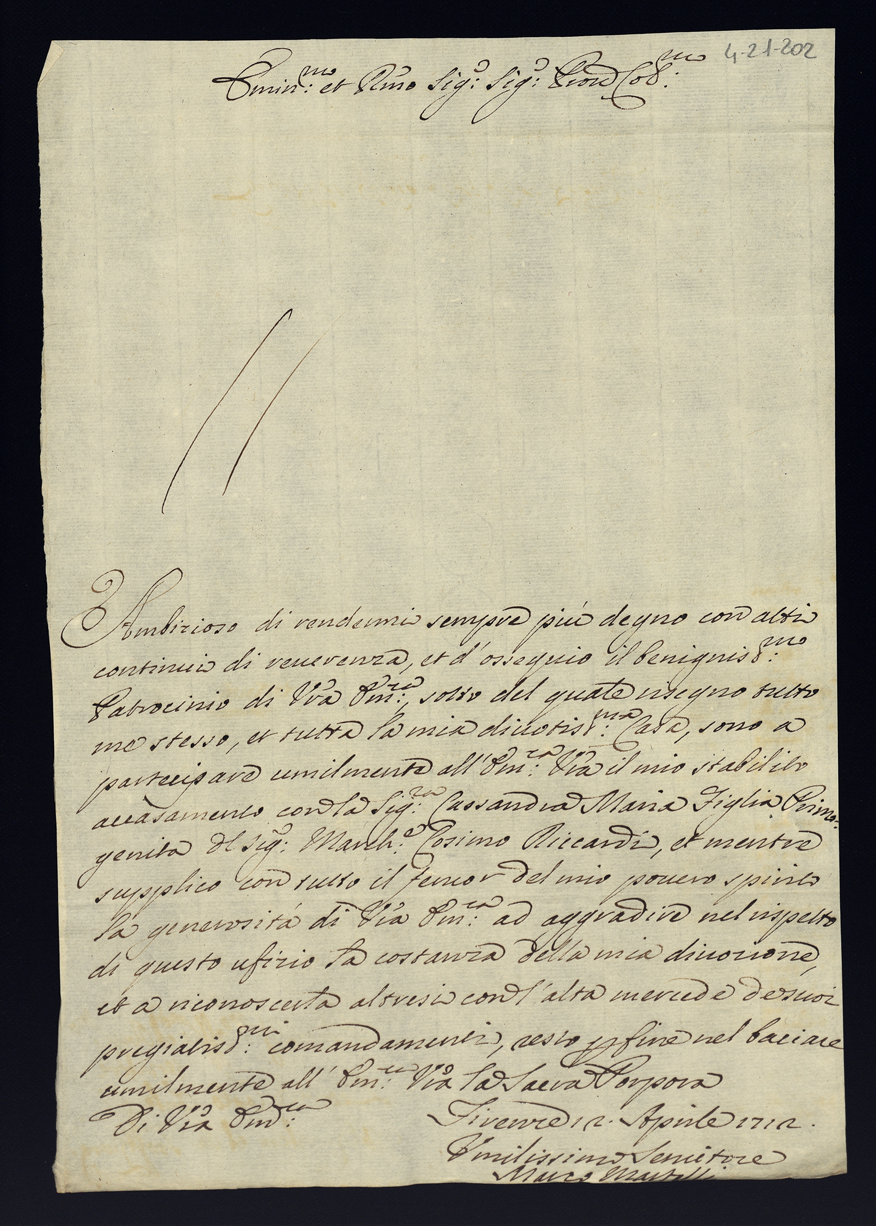 4-21-202
Emin.mo et R.mo Sig.e Sig.e Pron Col.mo
Ambizioso di rendermi sempre più degno con atti
continui di reverenza, et d'ossequio il benignis.mo
Patrocinio di V̄ra Em.za, sotto del quale rasegno tutto
me stesso, et tutta la mia divotis.ma Casa, sono a
partecipare umilmente all'Em.za V̄ra il mio stabilito
accasamento con la Sig.ra Cassandra Maria Figlia Primo:
genita del Sig.e March.e Cosimo Riccardi, et mentre
supplico con tutto il fervor del mio povero spirito
la generosità di V̄ra Em.za ad aggradire nel rispetto
di questo ufizio la costanza della mia divozione,
et a riconoscerla altresì con l'alta mercede de suoi
pregiatis.mi comandamenti, resto p fine nel baciare
umilmente all'Em.za V̄ra la Sacra Porpora
Di V̄ra Em.za
Firenze 12. Aprile 1712.
Umilissimo Servitore
Marco Martelli